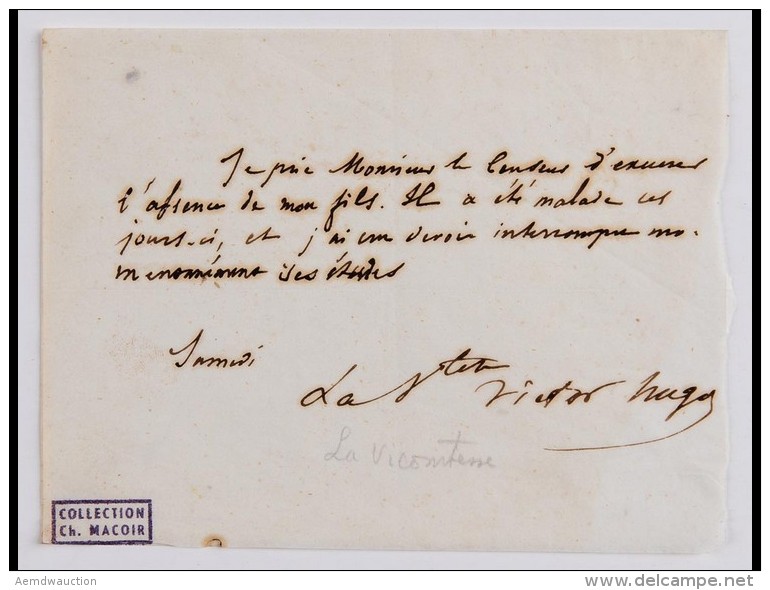 Je prie Monsieur le Censeur d'excuser
l'absence de mon fils. Il a été malade ces
jours-ci, et j'ai cru devoir interrompre mo-
mentanément ses études
Samedi
La Vtesse Victor Hugo
La Vicomtesse
COLLECTION
Ch. MACOIR
Aemdwauction
delcampe.net